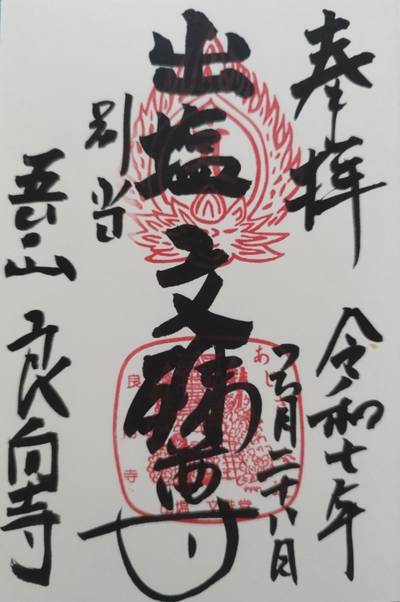 奉拝
令和七年
六月二十八日
出塩文殊尊
別当
五台山 良向寺